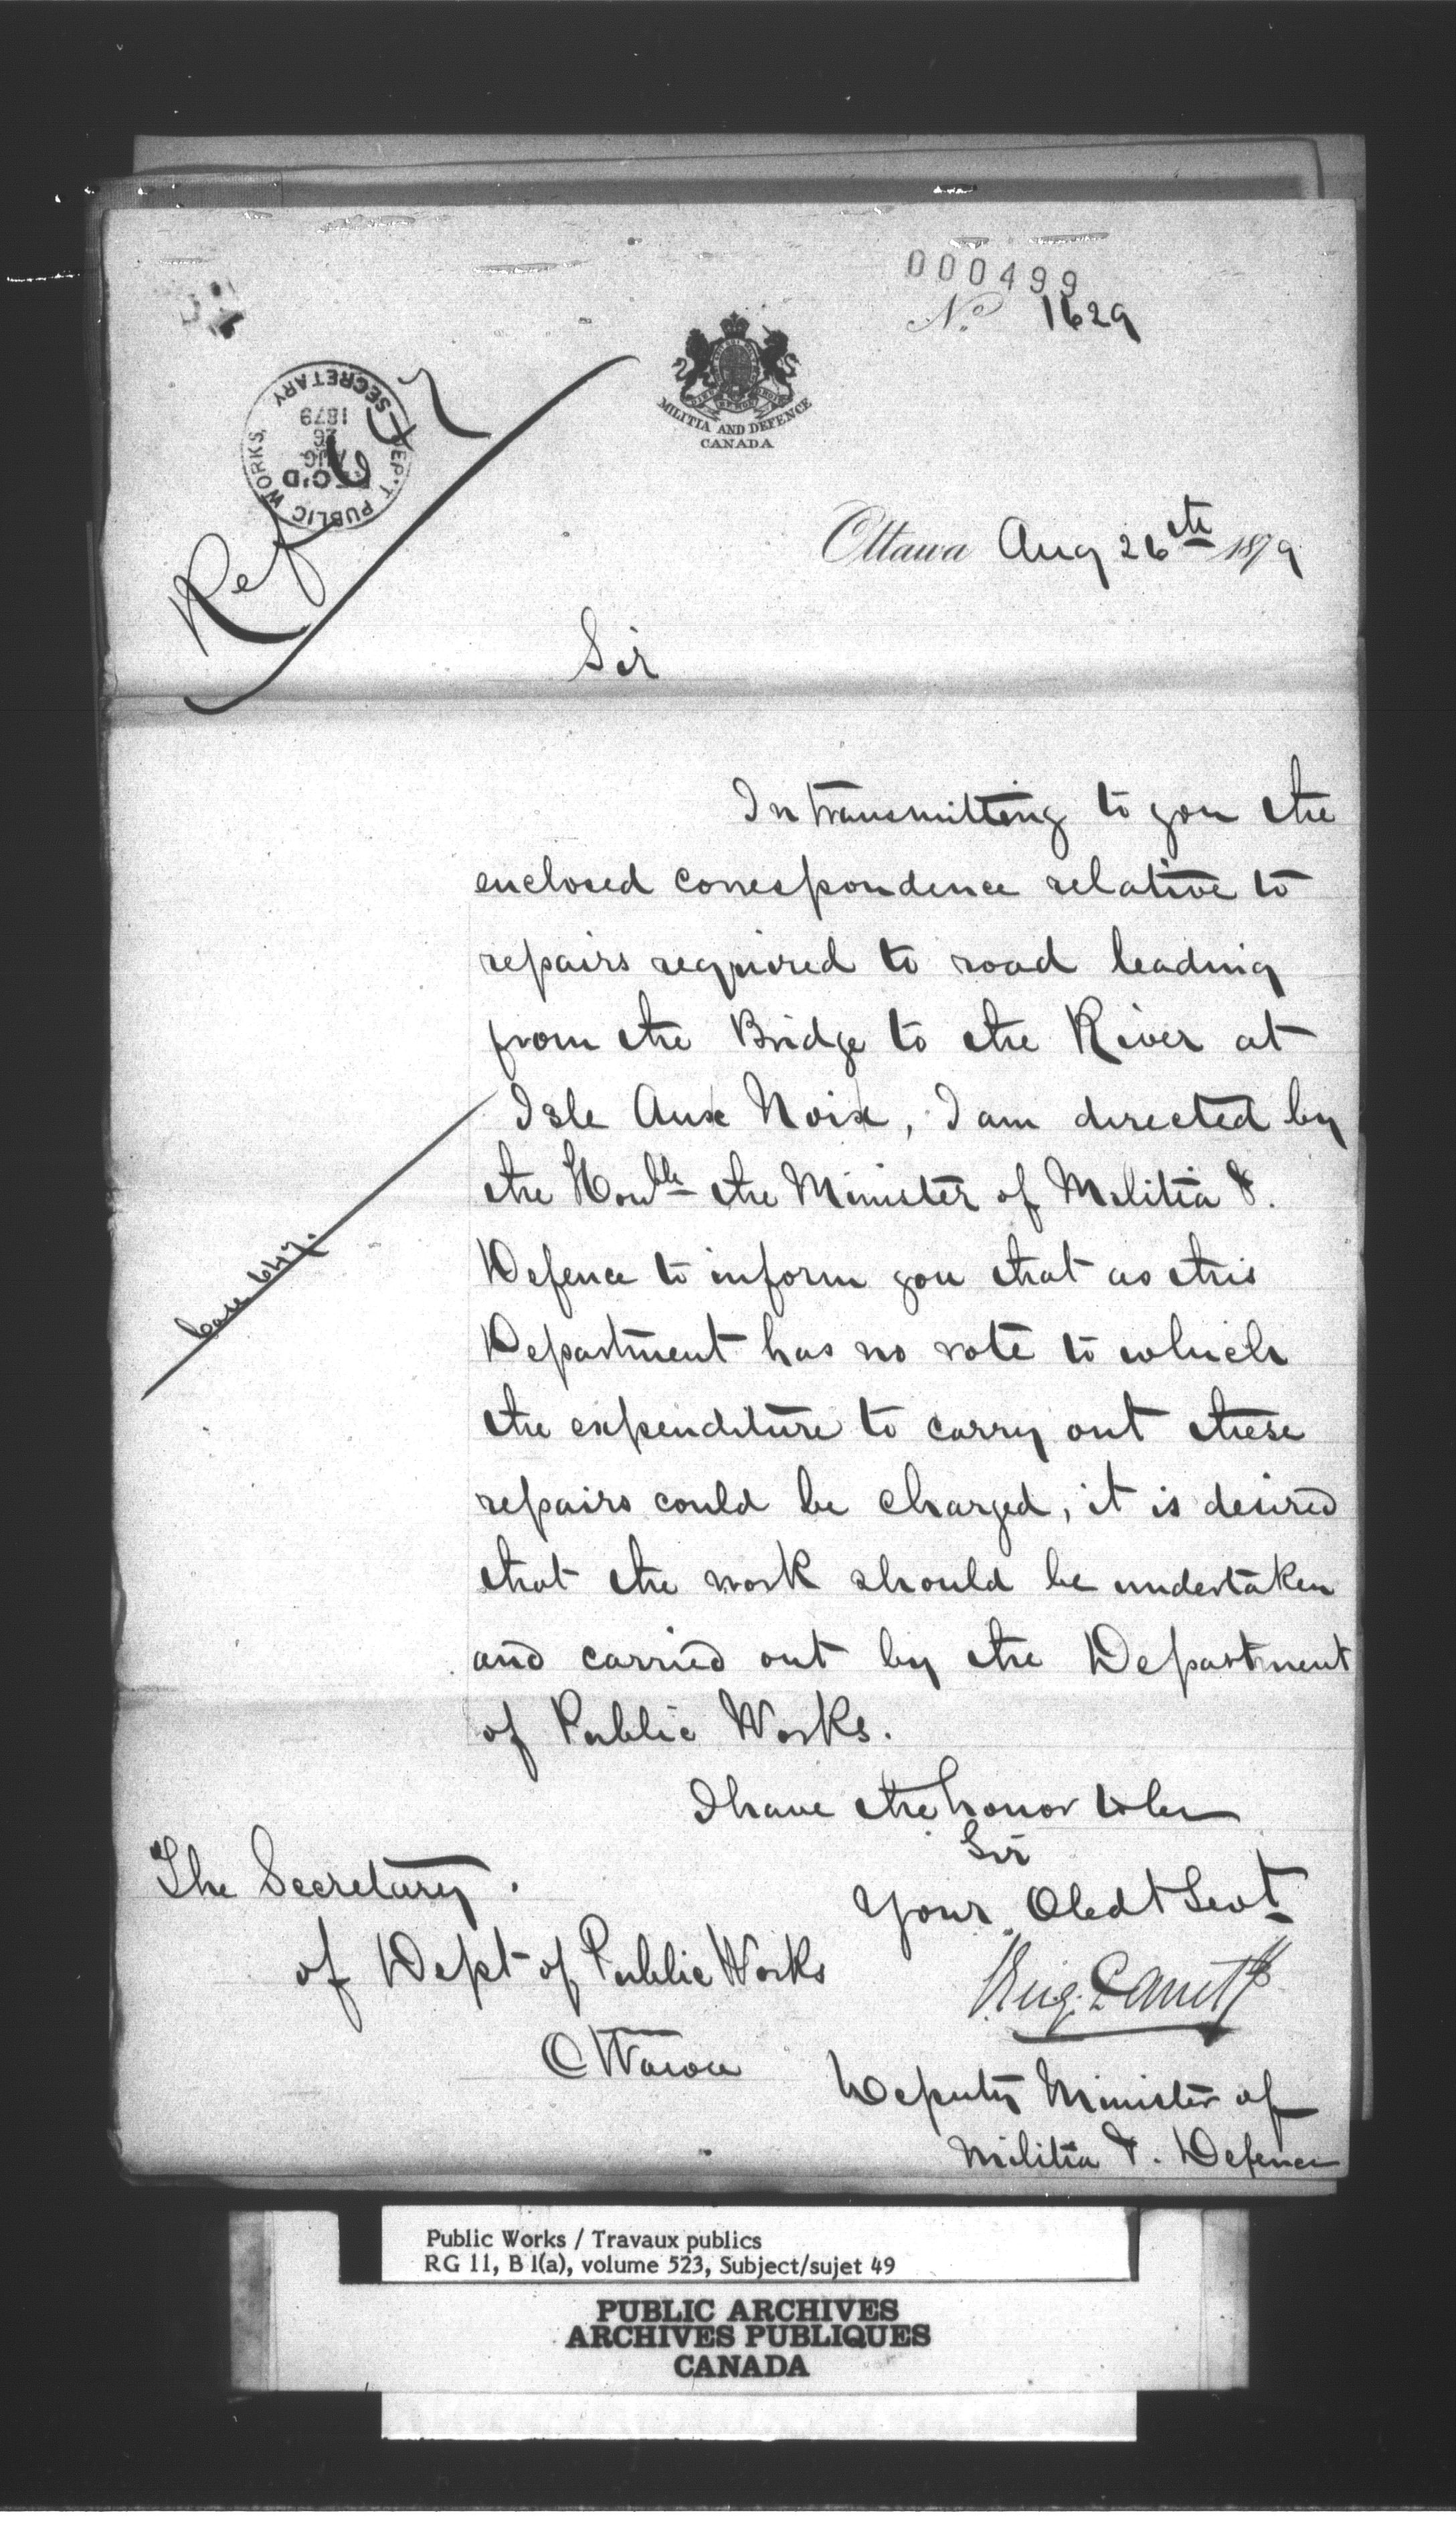 000499
No. 1629
MILITIA AND DEFENCE
CANADA
DEP'T PUBLIC WORKS, SECRETARY
REC'D
AUG
26
1879
Ref
Ottawa Aug 26th 1879
Sir
In transmitting to you the
enclosed correspondence relative to
repairs required to road leading
from the Bridge to the River at
Isle Aux Noix, I am directed by
the Honble the Minister of Militia &.
Defence to inform you that as this
Department has no vote to which
the expenditure to carry out these
repairs could be charged, it is desired
that the work should be undertaken
and carried out by the Department
of Public Works.
Case 647.
I have the honor to be
Sir
Your Obedt Servt
Deputy Minister of
Militia &. Defence
The Secretary.
of Dept of Public Works
Ottawa
Public Works / Travaux publics
RG 11, B 1(a), volume 523, Subject/sujet 49
PUBLIC ARCHIVES
ARCHIVES PUBLIQUES
CANADA